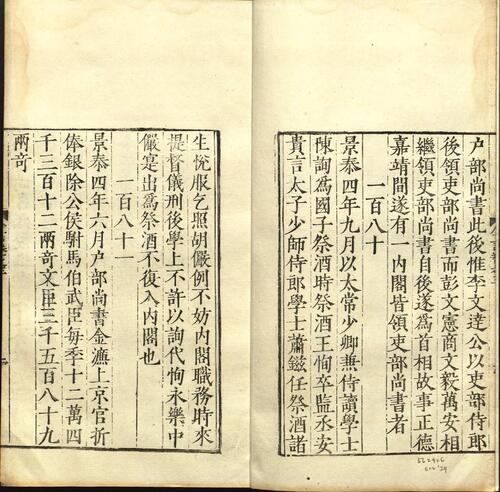 户部尚書此後惟李文達公以吏部侍郎
後領吏部尚書而彭文憲商文毅萬安相
繼領吏部尚書自後遂爲首相故事正德
嘉靖間遂有一內閣皆領吏部尚書者
一百八十
景泰四年九月以太常少卿兼侍讀學士
陳詢爲國子祭酒時祭酒王恂卒監丞安
貴言太子少師侍郎學士蕭鎡任祭酒諸
生悅服乞照胡儼例不妨內閣職務時來
提督儀刑後學上不許以詢代恂永樂中
儼寔出爲祭酒不復入內閣也
一百八十一
景泰四年六月户部尚書金濂上京官折
俸銀除公侯駙馬伯武臣每季十二萬四
千三百十二兩奇文臣三千五百八十九
兩奇